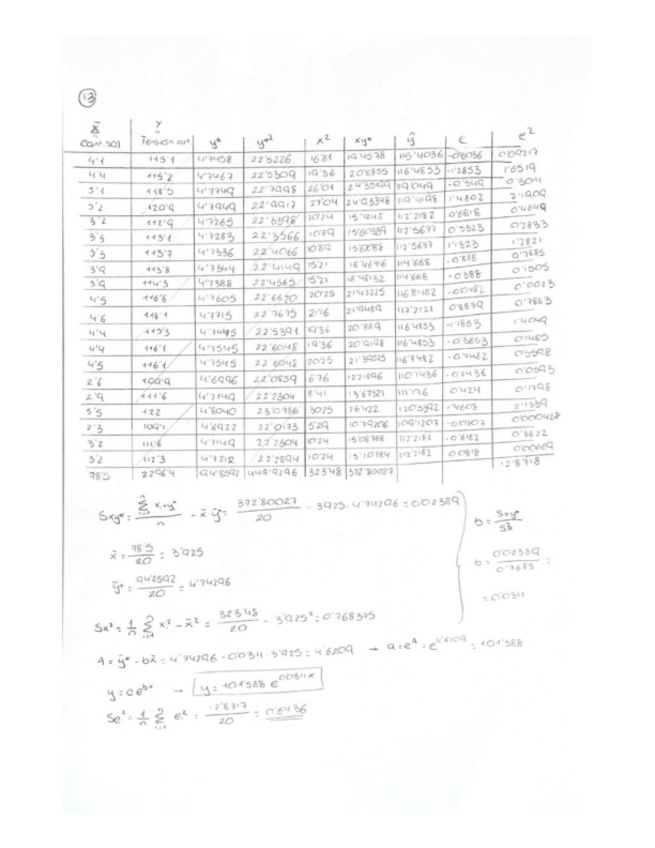 13
x y
Cant. sal Tensión art y* y*² x² xy* ŷ e e²
4'1 115'1 4'7458 22'5226 16'81 19'4578 115'4036 -0'6036 0'09217
4'4 115'2 4'7467 22'5309 19'36 20'8855 116'4853 -1'2853 1'6519
5'1 118'5 4'7749 22'7998 26'01 119'049 -0'549 0'3014
5'2 120'9 4'7949 22'9917 27'04 24'93348 119'4198 1'4802 2'1909
3'2 112'9 4'7265 22'3398 10'24 112'2182 0'6818 0'4649
3'3 113'1 4'7283 22'3566 10'89 112'5677 0'5323 0'2833
3'3 113'7 4'7336 22'4066 10'89 112'5677 1'1323 1'2821
3'9 113'8 4'7344 22'4149 15'21 18'4646 114'688 -0'888 0'7885
3'9 114'3 4'7388 22'4565 15'21 114'688 -0'388 0'1505
4'5 116'8 4'7605 22'6620 20'25 21'42225 116'8482 -0'0482 0'0023
4'6 118'1 4'7715 22'7675 21'16 21'9489 117'2121 0'8879 0'7883
4'4 115'3 4'7475 22'5391 19'36 20'889 116'4853 -1'1853 1'4049
4'4 116'1 4'7545 22'6048 19'36 20'9198 116'4853 -0'3853 0'1485
4'5 116'1 4'7545 22'6048 20'25 21'39525 116'8482 -0'7482 0'5598
2'6 109'9 4'6996 22'0859 6'76 110'1436 -0'2436 0'0593
2'9 111'6 4'7149 22'2304 8'41 13'67321 111'176 0'424 0'1798
5'5 122 4'8040 23'0786 30'25 26'422 120'5392 1'4608 2'1339
2'3 109'1 4'6922 22'0173 5'29 10'79206 109'1207 -0'0207 0'000428
3'2 111'6 4'7149 22'2304 10'24 15'08768 112'2182 -0'6182 0'3822
3'2 112'3 4'7212 22'2894 10'24 15'10784 112'2182 0'0818 0'00669
78'5 2296'4 94'8592 449'9296 323'48 372'80027 12'8718
Sxy* = Σ xi·yi* / n - x̄·ȳ* = 372'80027 / 20 - 3'925·4'74296 = 0'02389
b = Sxy* / Sx²
x̄ = 78'5 / 20 = 3'925
b = 0'02389 / 0'7683 =
ȳ* = 94'8592 / 20 = 4'74296
= 0'0311
Sx² = 1/n Σ xi² - x̄² = 323'48 / 20 - 3'925² = 0'768375
A = ȳ* - bx̄ = 4'74296 - 0'0311·3'925 = 4'6209 → a = e^A = e^4'6209 = 101'588
y = ae^bx → y = 101'588 e^0'0311x
Se² = 1/n Σ ei² = 12'8717 / 20 = 0'6436